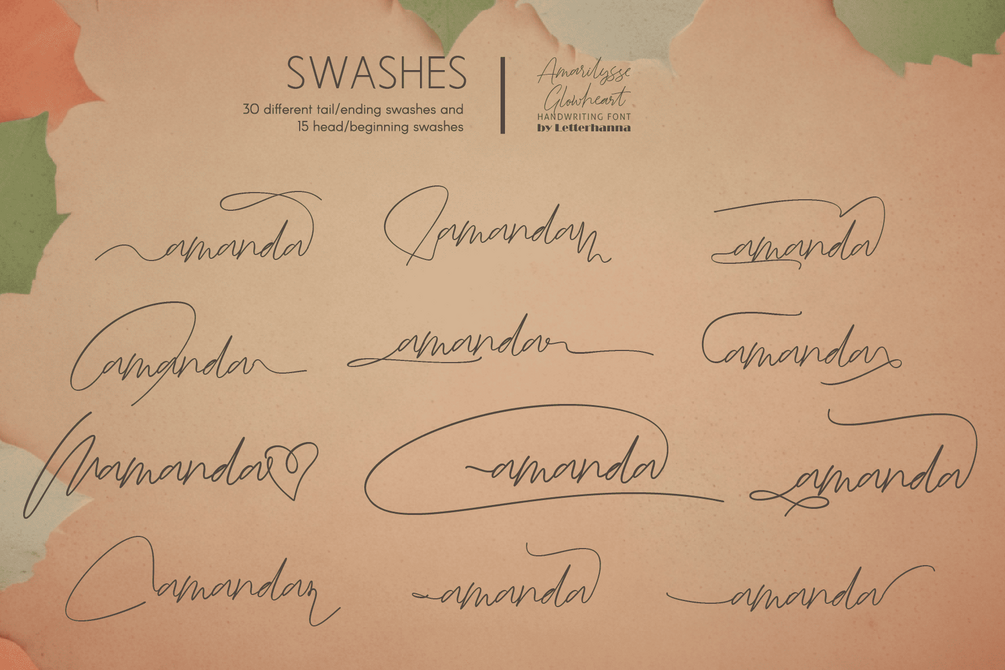 SWASHES
30 different tail/ending swashes and
15 head/beginning swashes
Amarilysse
Glowheart
HANDWRITING FONT
by Letterhanna
amanda amanda amanda
amanda amanda amanda
amanda amanda amanda
amanda amanda amanda